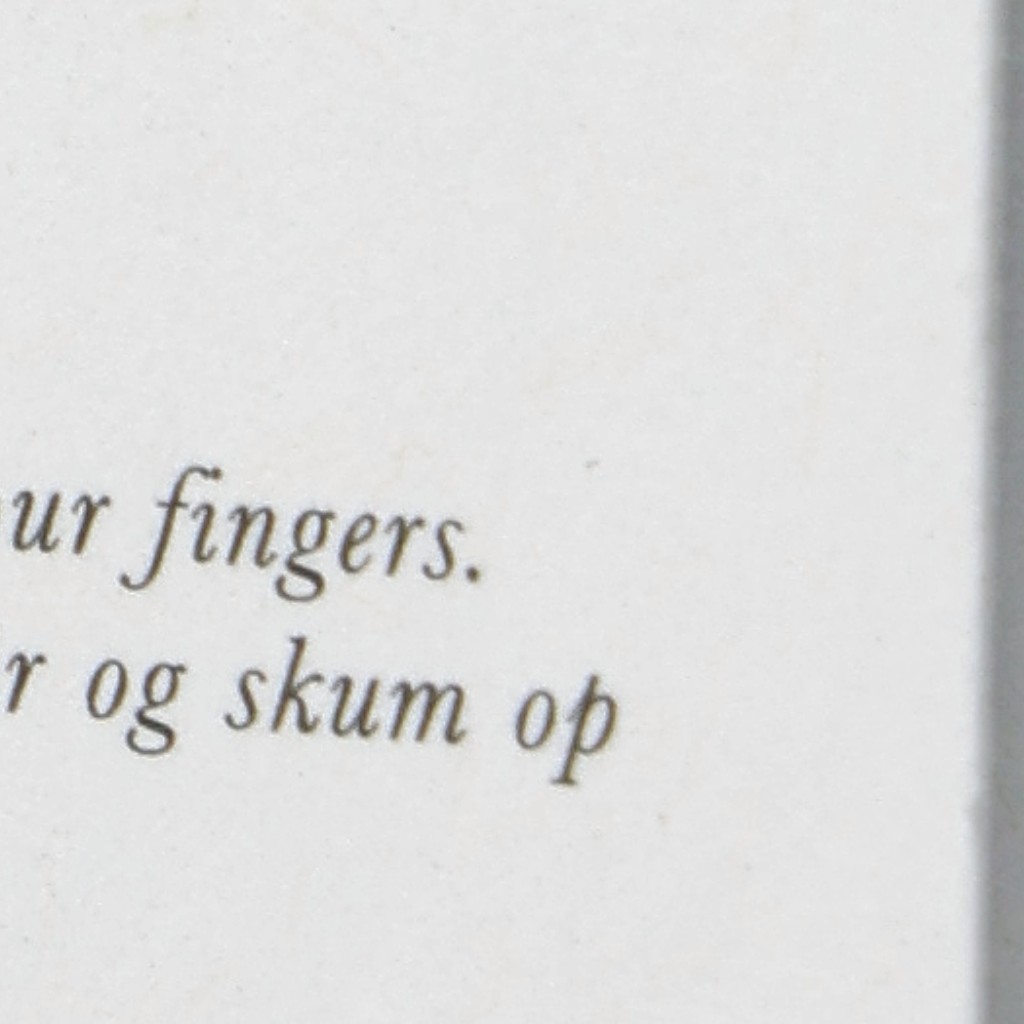 fingers.
og skum op